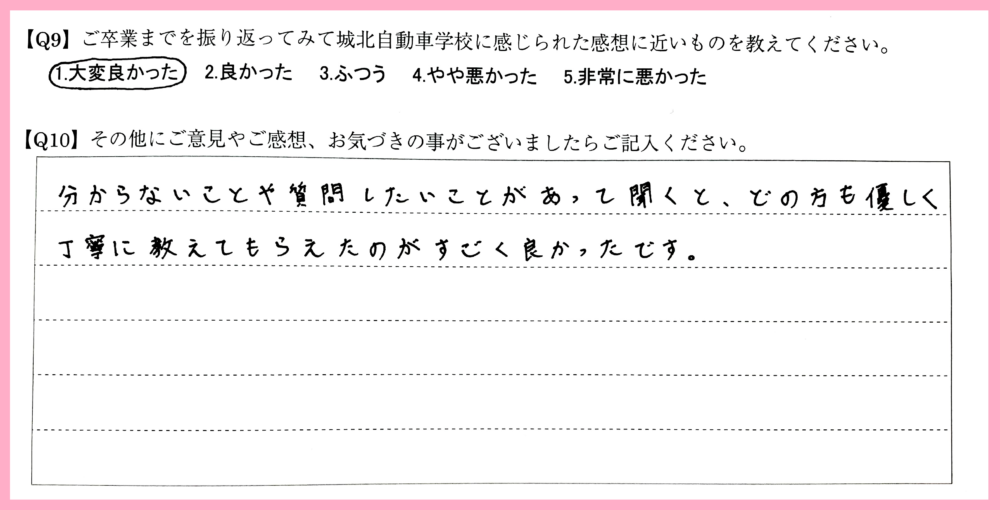 【Q9】ご卒業までを振り返ってみて城北自動車学校に感じられた感想に近いものを教えてください。
1.大変良かった 2.良かった 3.ふつう 4.やや悪かった 5.非常に悪かった
【Q10】その他にご意見やご感想、お気づきの事がございましたらご記入ください。
分からないことや質問したいことがあって聞くと、どの方も優しく
丁寧に教えてもらえたのがすごく良かったです。